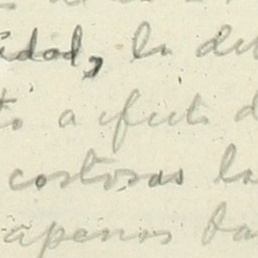 idad, la de
to a efecto d
costosas la
apenas da